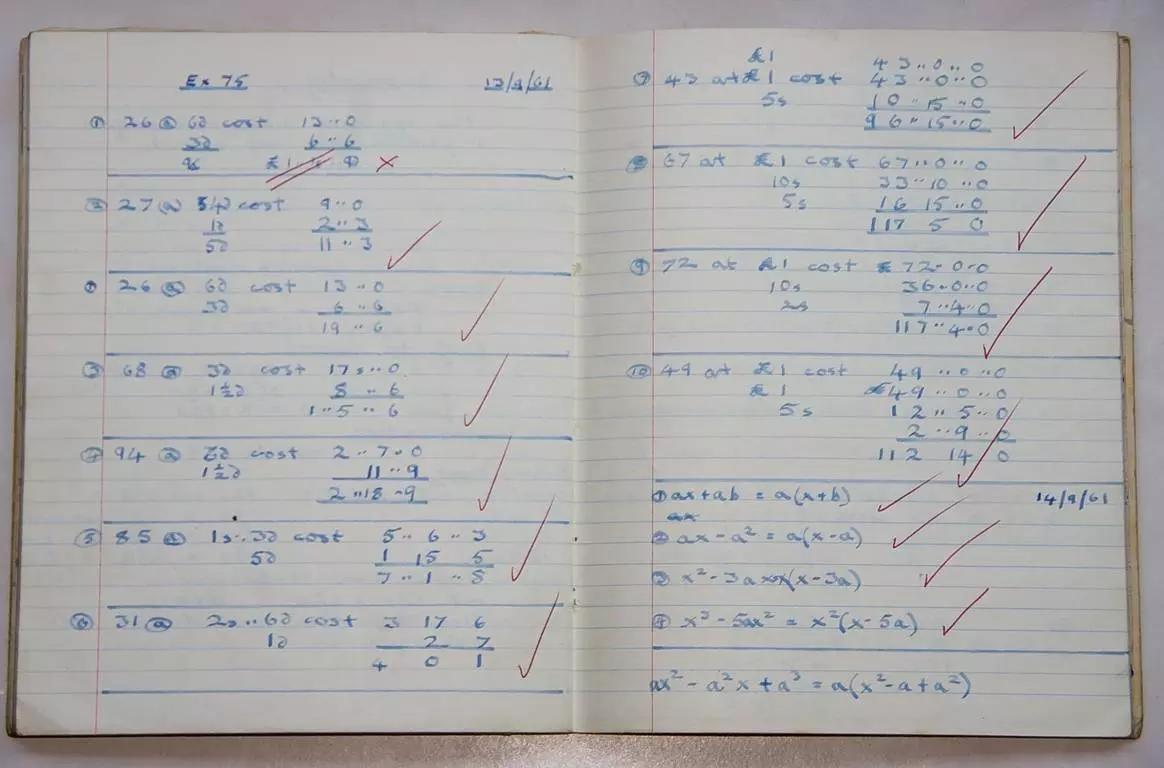 Ex 75 13/9/61
① 26 @ 6d cost 13 " 0
3d 6 " 6
£1
② 27 @ 4d cost 9 " 0
1d 2 " 3
5d 11 " 3
① 26 @ 6d cost 13 " 0
3d 6 " 6
19 " 6
③ 68 @ 3d cost 17s " 0
1½d 8 " 6
1 " 5 " 6
④ 94 @ 6d cost 2 " 7 " 0
1½d 11 " 9
2 " 18 " 9
⑤ 85 @ 1s " 3d cost 5 " 6 " 3
5d 1 15 5
7 " 1 " 8
⑥ 31 @ 2s " 6d cost 3 17 6
1d 2 7
4 0 1
£1 43 " 0 " 0
⑦ 43 at £1 cost 43 " 0 " 0
5s 10 " 15 " 0
96 " 15 " 0
⑧ 67 at £1 cost 67 " 0 " 0
10s 33 " 10 " 0
5s 16 15 " 0
117 5 0
⑨ 72 at £1 cost £72 " 0 " 0
10s 36 " 0 " 0
2s 7 " 4 " 0
117 " 4 " 0
⑩ 49 at £1 cost 49 " 0 " 0
£1 £49 " 0 " 0
5s 12 " 5 " 0
2 " 9 " 0
112 14 0
① ax + ab = a(x+b) 14/9/61
ax
② ax - a² = a(x-a)
③ x² - 3ax = x(x-3a)
④ x³ - 5ax² = x²(x-5a)
ax² - a²x + a³ = a(x² - a + a²)